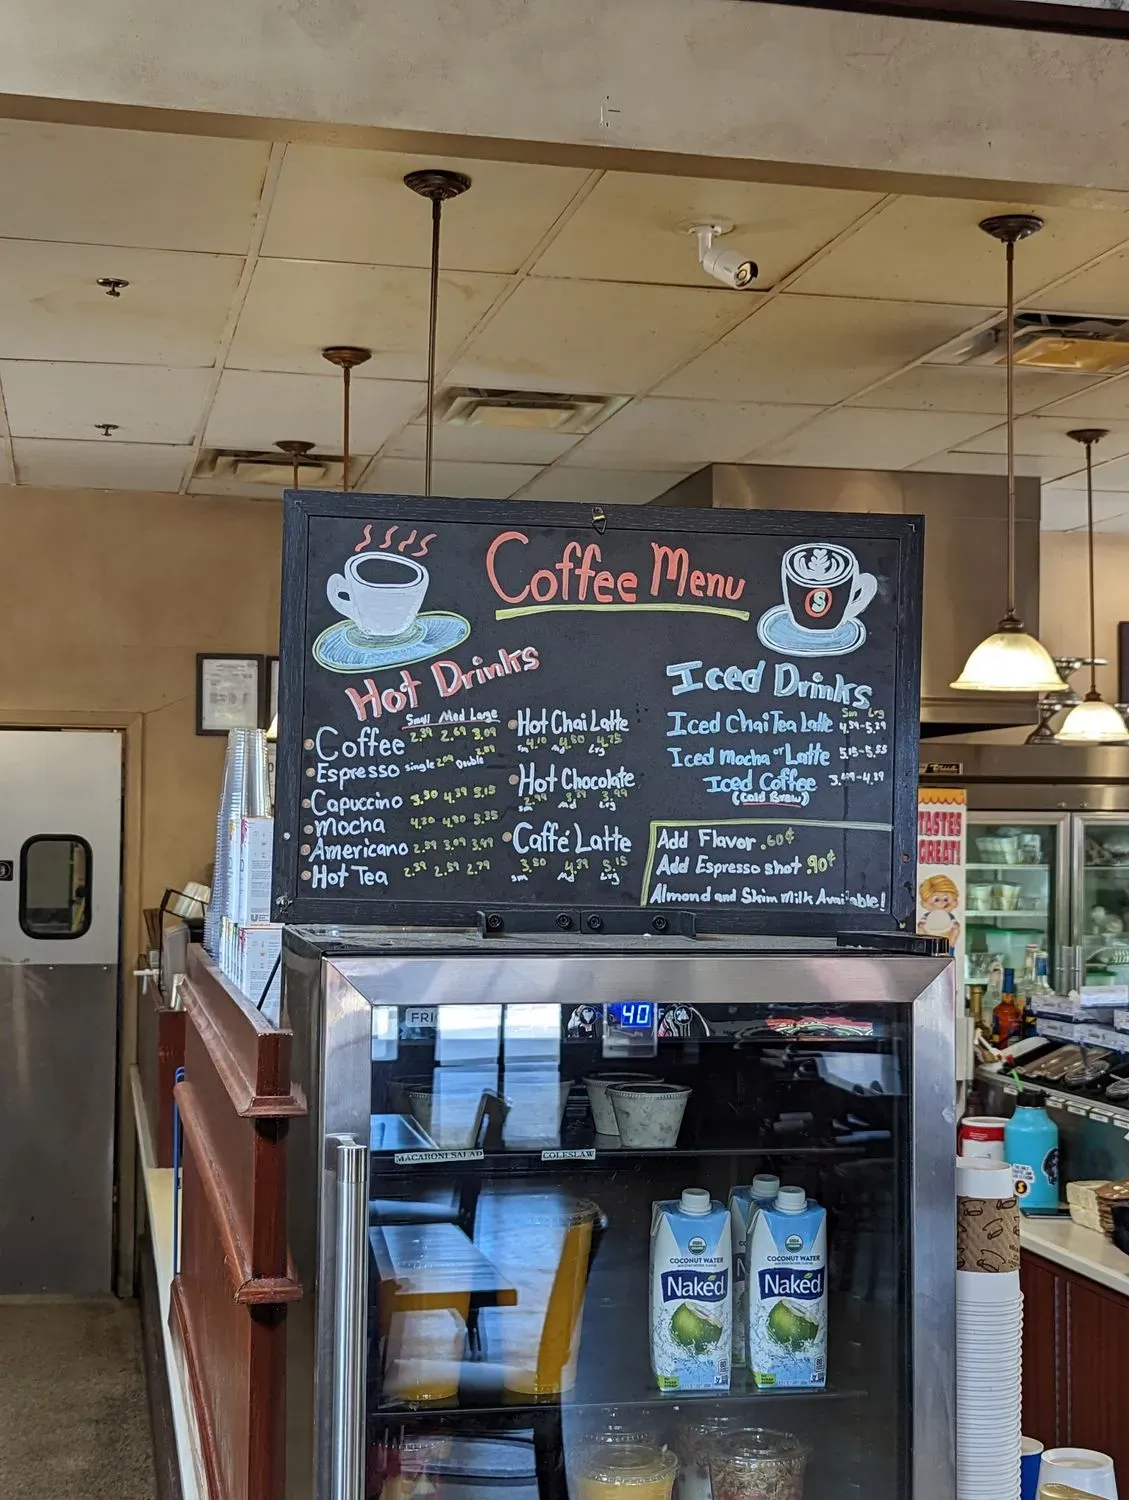 Coffee Menu
S
Hot Drinks
Small Med Large
Coffee 2.39 2.69 3.09
Espresso single 2.09 Double 2.89
Capuccino 3.50 4.39 5.15
Mocha 4.20 4.80 5.35
Americano 2.39 3.09 3.49
Hot Tea 2.39 2.59 2.79
Hot Chai Latte
sm 4.10 md 4.50 Lrg 4.75
Hot Chocolate
2.99 3.39 3.99
sm md Lrg
Caffé Latte
3.50 4.39 5.15
sm Md Lrg
Iced Drinks
Sm Lrg
Iced Chai Tea Latte 4.59-5.29
Iced Mocha or Latte 5.15-5.55
Iced Coffee
(Cold Brew)
Add Flavor .60¢
Add Espresso shot .90¢
Almond and Skim Milk Available!
TASTES
GREAT!
FRI
40
MACARONI SALAD
COLESLAW
USDA
COCONUT WATER
Naked
USDA
COCONUT WATER
Naked